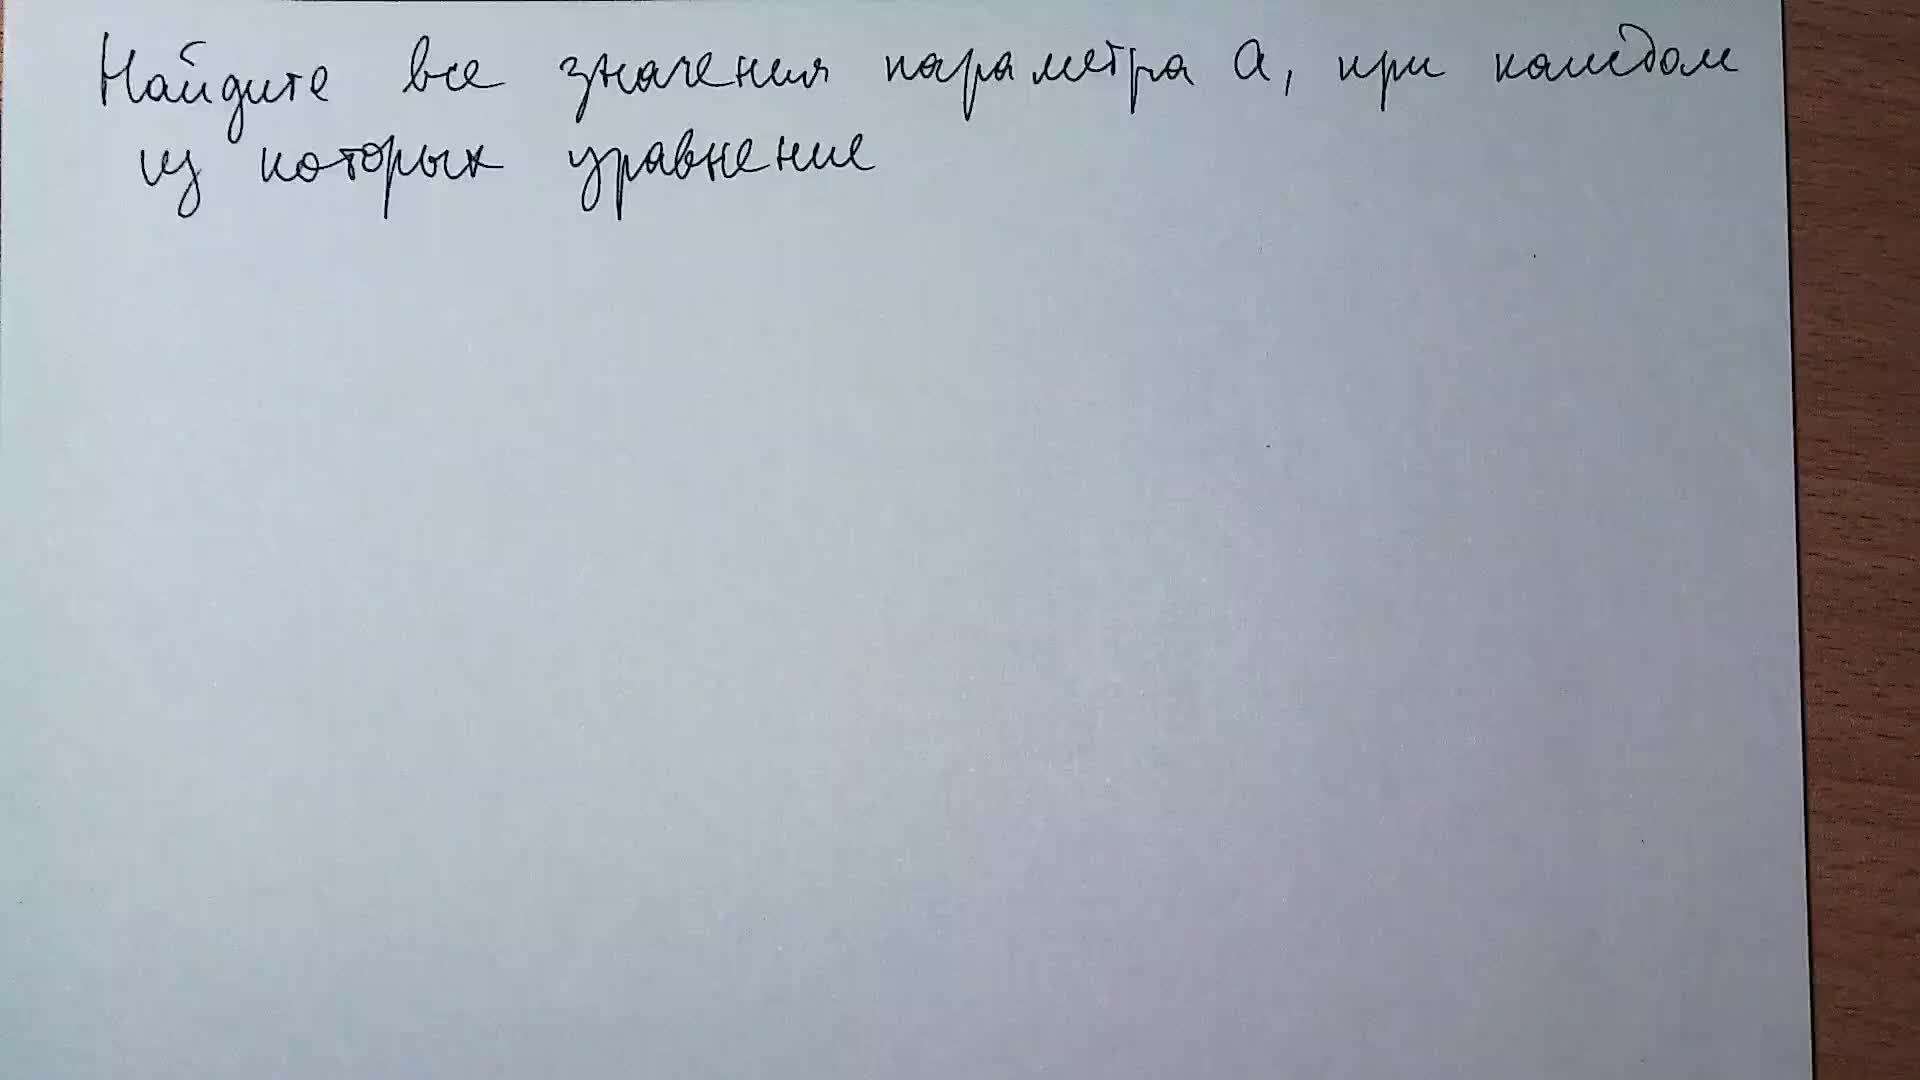 Найдите все значения параметра a, при каждом
из которых уравнение